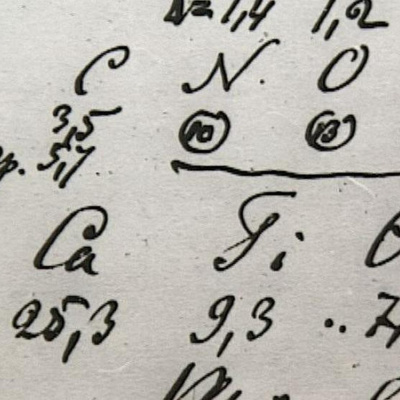 N=1,4 1,2
C N. O
3,5 10 13
5,7
Ca Ti
25,3 9,3 ..